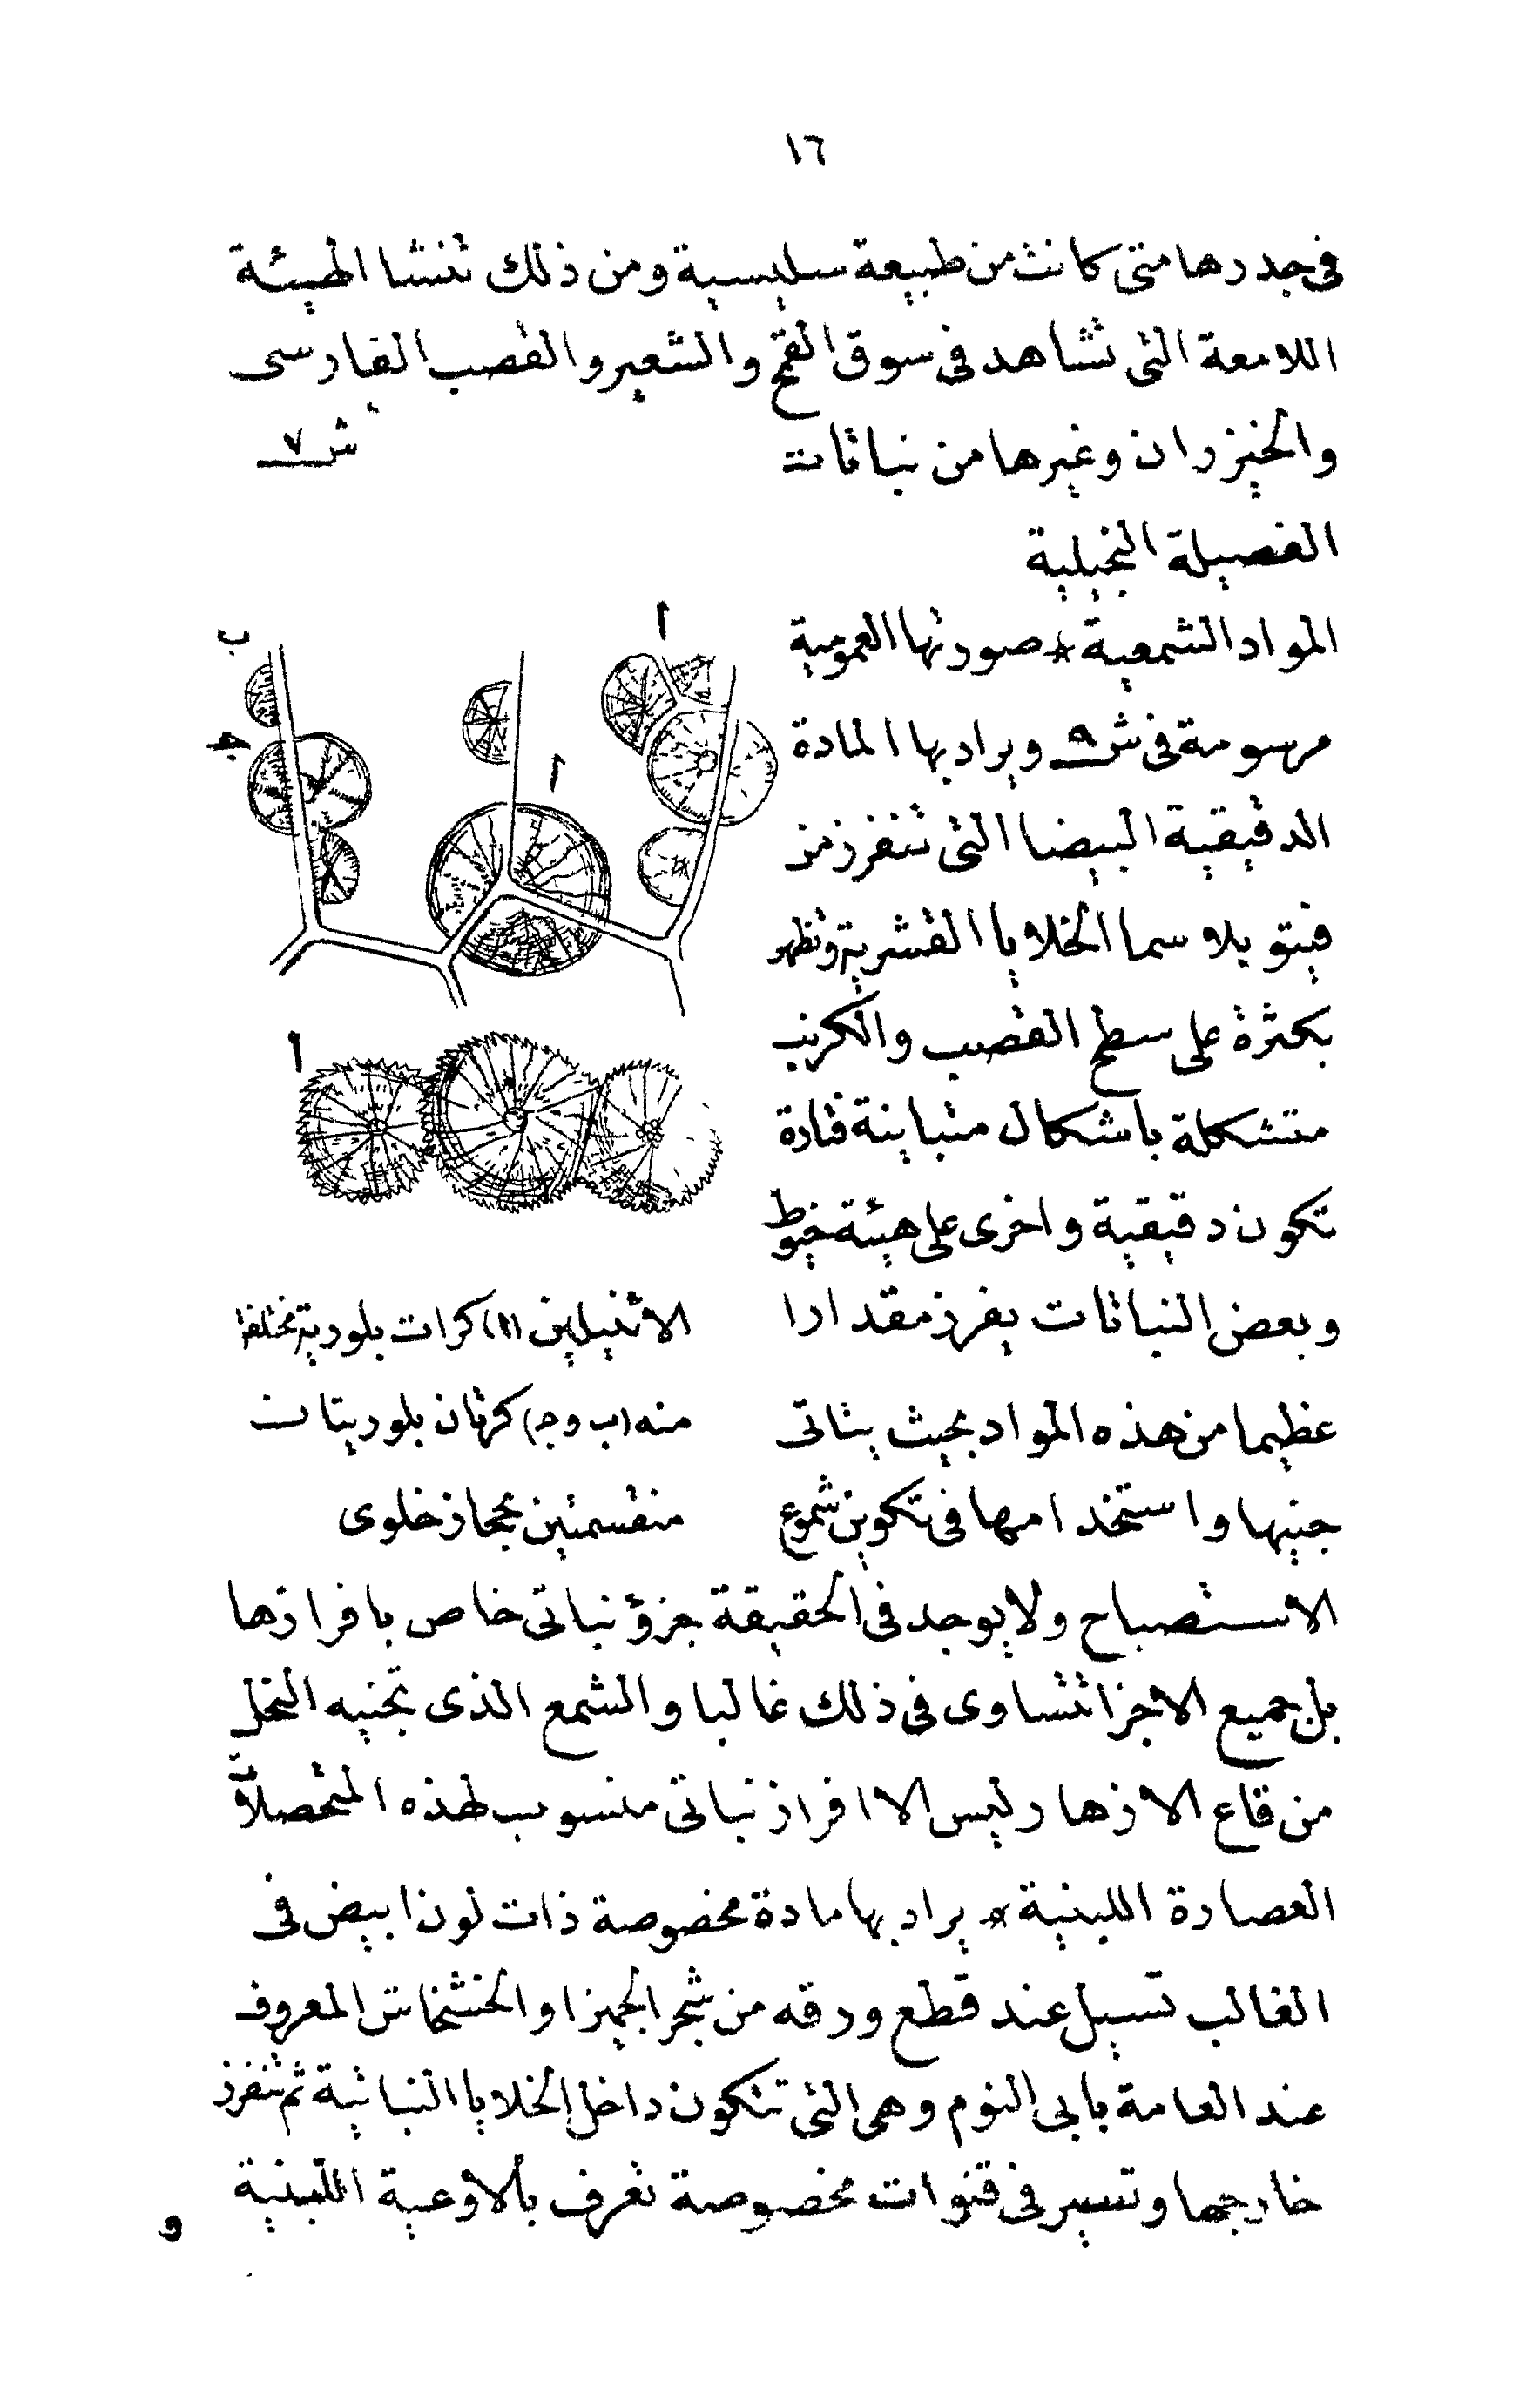 ١٦
فى جدرها متى كانت من طبيعة سليسية ومن ذلك تنشا الهيئة
اللامعة التى تشاهد فى سوق القمح والشعير والقصب الفارسى
والخيزران وغيرها من نباتات
الفصيلة النجيلية
المواد الشمعية * صورتها العمومية
مرسومة فى ش ٩ ويراد بها المادة
الدقيقية البيضا التى تنفرز من
فيتويلاسما الخلايا القشرية وتظهر
بكثرة على سطح القصب والكرنب
متشكلة باشكال متباينة فتارة
تكون دقيقية واخرى على هيئة خيوط
وبعض النباتات يفرز مقدارا
عظيما من هذه المواد بحيث يتاتى
جنيها واستخدامها فى تكوين شموع
ش ٧
ب
ا
جـ
ا
ا
الانيلين (ا) كرات بلورية مختلفة
منه (ب وج) كرتان بلوريتان
منقسمتين بحجاز خلوى
الاستصباح ولا يوجد فى الحقيقة جزؤ نباتى خاص بافرازها
بل جميع الاجزا تتساوى فى ذلك غالبا والشمع الذى تجنيه النحل
من قاع الازهار ليس الا افراز نباتى منسوب لهذه المتحصلات
العصارة اللبنية * يراد بها مادة مخصوصة ذات لون ابيض فى
الغالب تسيل عند قطع ورقه من شجر الجميز او الخشخاش المعروف
عند العامة بابى النوم وهى التى تتكون داخل الخلايا النباتية ثم تنفرز
خارجها وتسير فى قنوات مخصوصة تعرف بالاوعية اللبنية
و